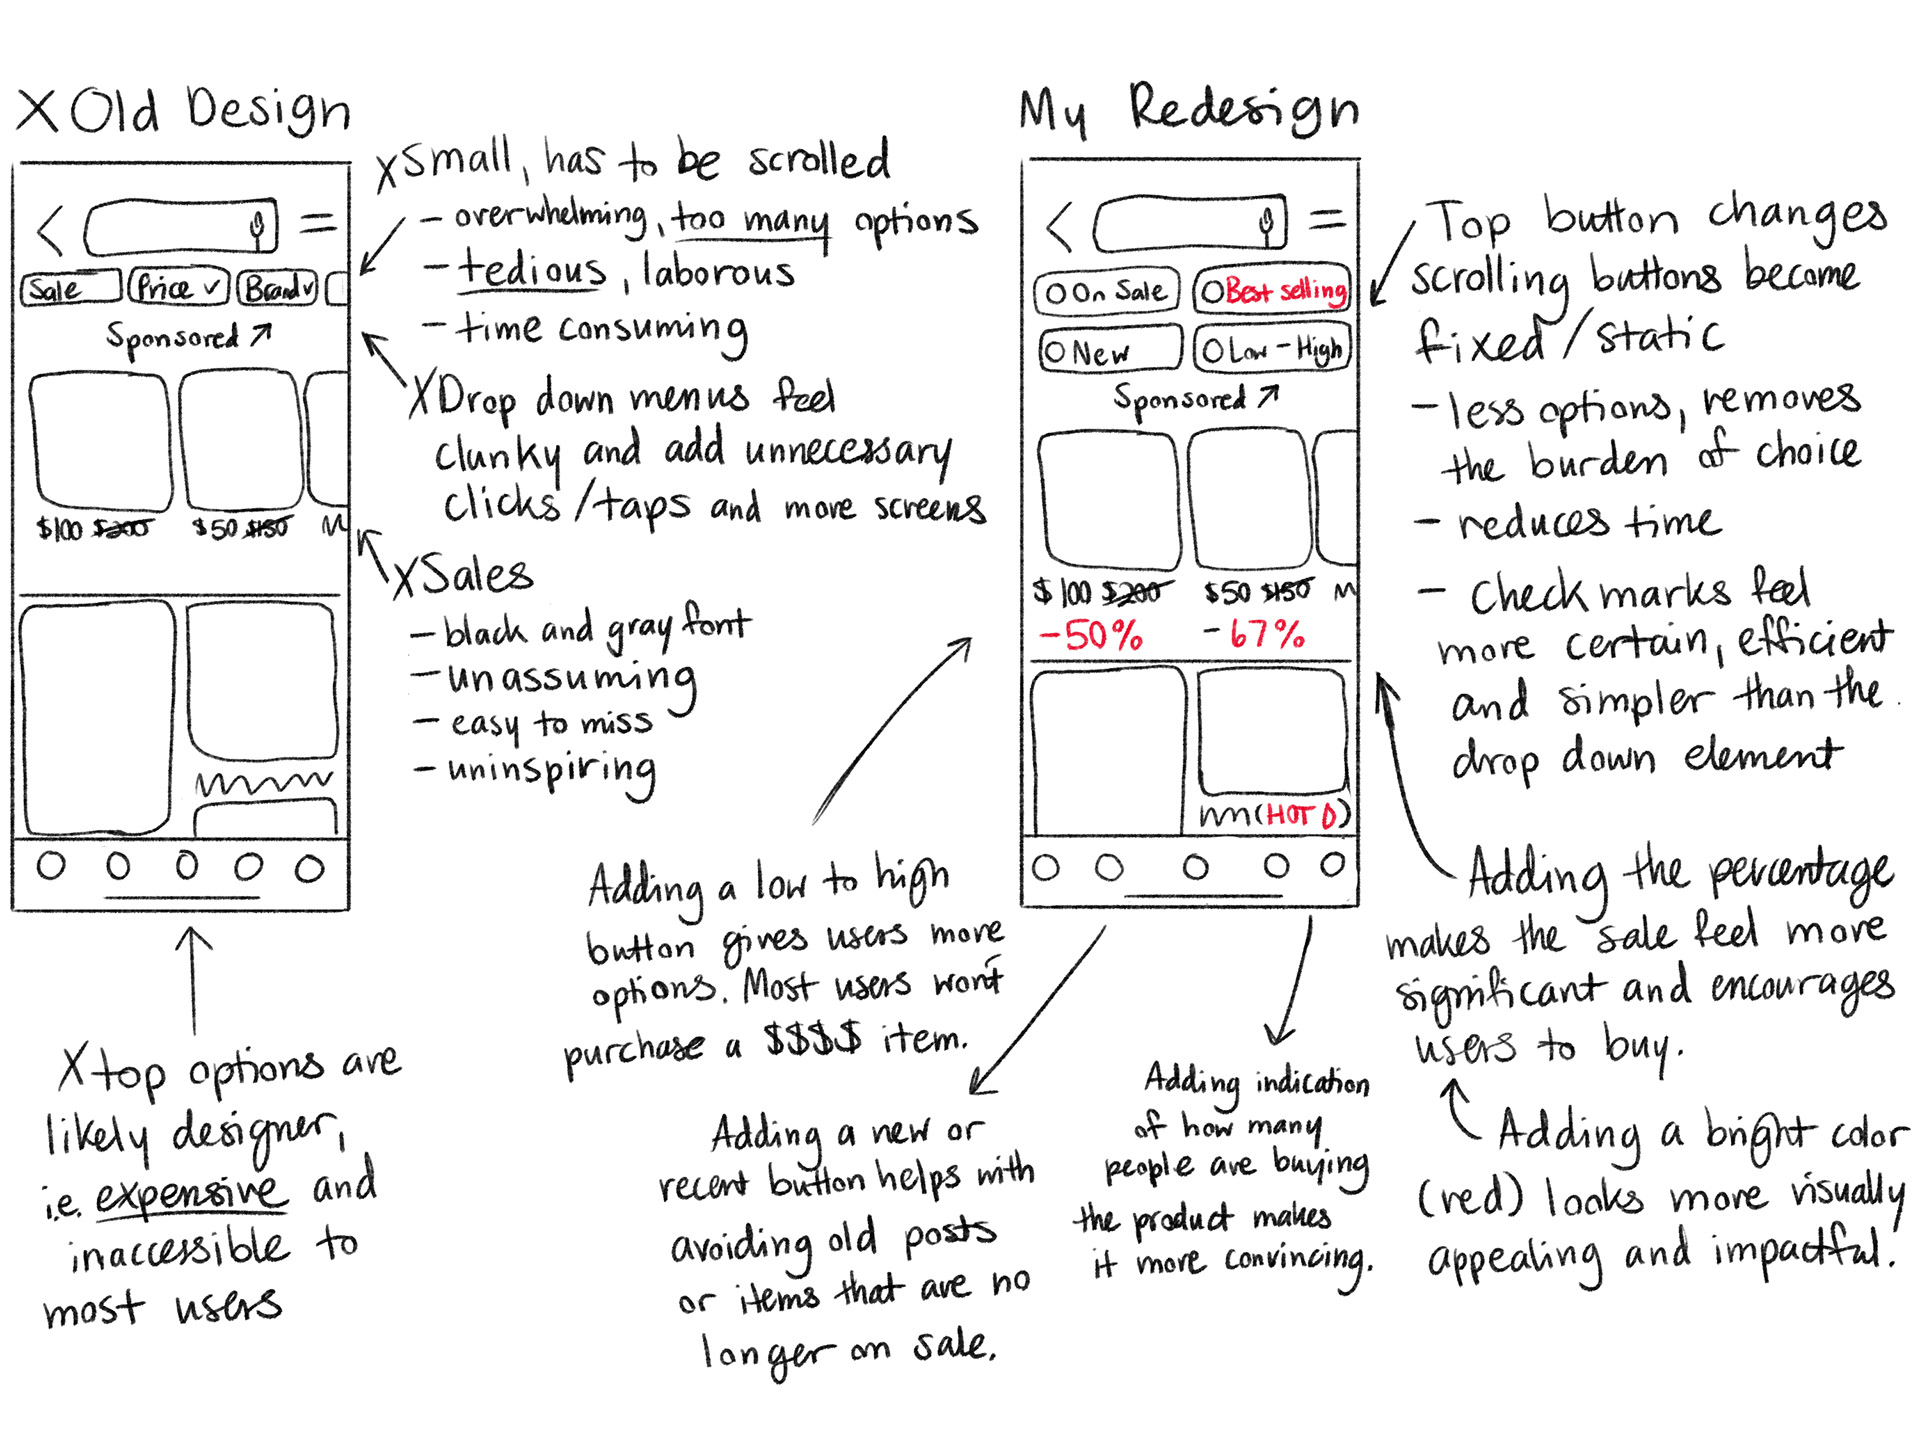 X Old Design
Sale
Price ✓
Brand ✓
Sponsored ↗
$100 $200
$50 $150
X Small, has to be scrolled
- overwhelming, too many options
- tedious, laborous
- time consuming
X Drop down menus feel
clunky and add unnecessary
clicks/taps and more screens
X Sales
- black and gray font
- unassuming
- easy to miss
- uninspiring
X top options are
likely designer,
i.e. expensive and
inaccessible to
most users
My Redesign
On Sale
Best selling
New
Low - High
Sponsored ↗
$100 $200
$50 $150
-50%
-67%
(HOT)
Adding a low to high
button gives users more
options. Most users won't
purchase a $$$$ item.
Adding a new or
recent button helps with
avoiding old posts
or items that are no
longer on sale.
Adding indication
of how many
people are buying
the product makes
it more convincing.
Top button changes
scrolling buttons become
fixed/static
- less options, removes
the burden of choice
- reduces time
- Check marks feel
more certain, efficient
and simpler than the
drop down element
Adding the percentage
makes the sale feel more
significant and encourages
users to buy.
Adding a bright color
(red) looks more visually
appealing and impactful.